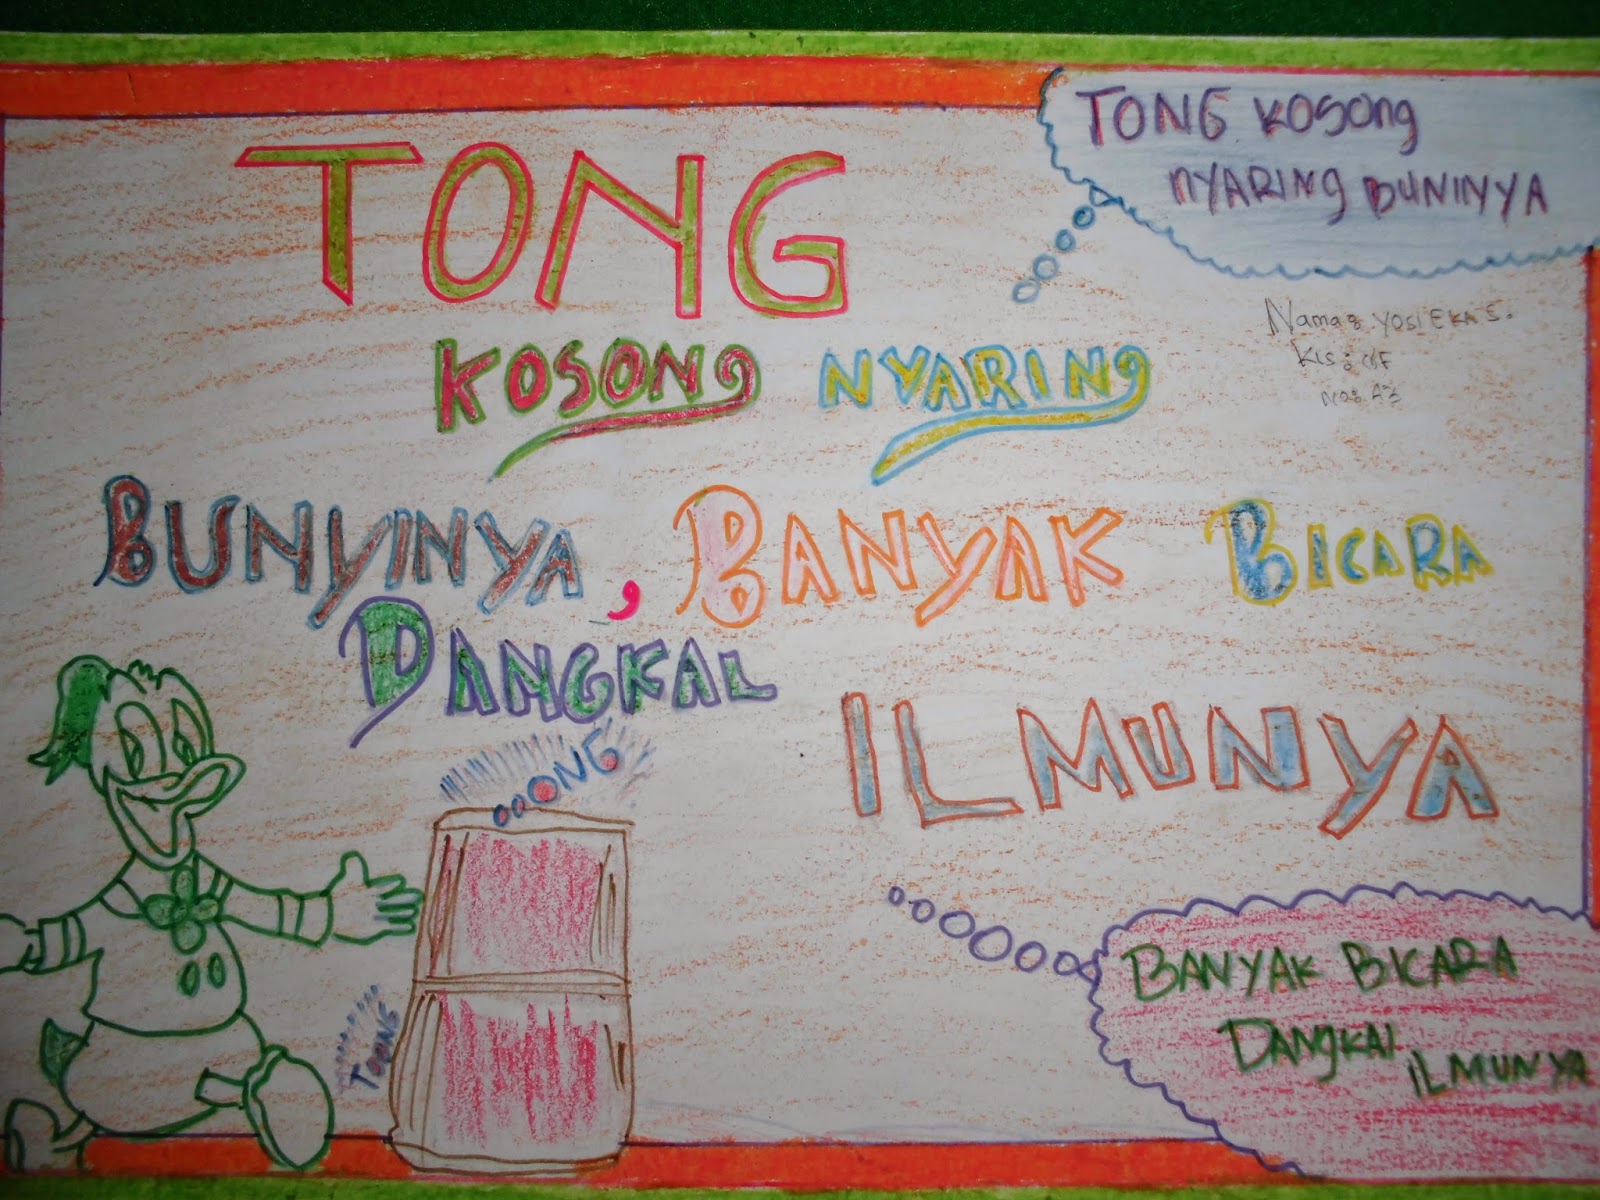 TONG KOSONG
NYARING BUNINYA
TONG
KOSONG NYARING
BUNYINYA, BANYAK BICARA
DANGKAL
ILMUNYA
Nama: YOSI EKA S.
KLS:
No:
OOONG
TOONG
BANYAK BICARA
DANGKAL
ILMUNYA